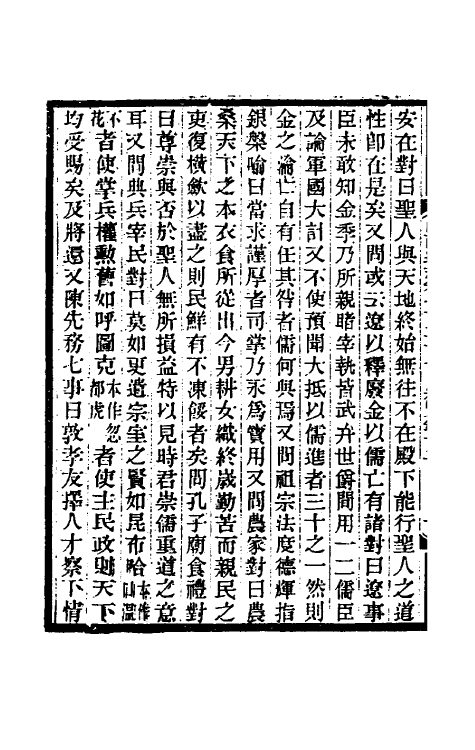 安在對曰聖人與天地終始無往不在殿下能行聖人之道
性即在是矣又問或云遼以釋廢金以儒亡有諸對曰遼事
臣未敢知金季乃所親睹宰執皆武弁世爵間用一二儒臣
及論軍國大計又不使預聞大抵以儒進者三十之一然則
金之淪亡自有任其咎者儒何與焉又問祖宗法度德輝指
銀槃喻曰當求謹厚者司掌乃永為寶用又問農家對曰農
桑天下之本衣食所從出今男耕女織終歲勤苦而親民之
吏復橫斂以盡之則民鮮有不凍餒者矣問孔子廟食禮對
曰尊崇與否於聖人無所損益特以見時君崇儒重道之意
耳又問典兵宰民對曰莫如更遣宗室之賢如昆布哈本作
不花者使掌兵權勲舊如呼圖克本作忽都虎者使主民政則天下
均受賜矣及將還又陳先務七事曰敦孝友擇人才察下情